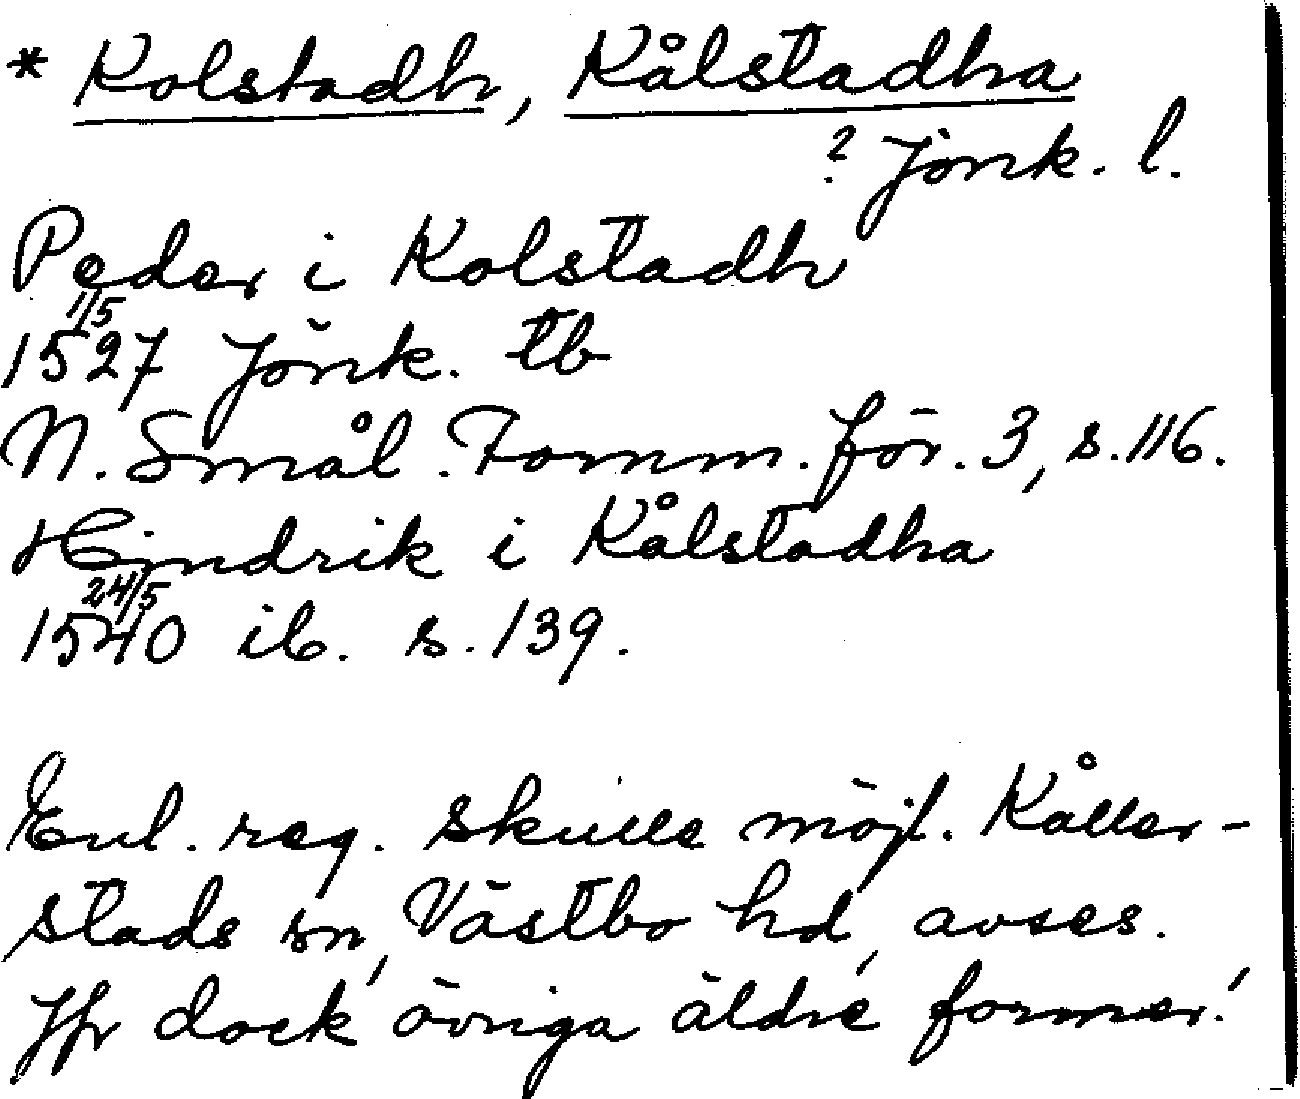 * Kolstadh, Kålstadha
? Jönk. l.
Peder i Kolstadh
1/5
1527 Jönk. tb
N. Smål. Fornm. för. 3, s. 116.
Hindrik i Kålstadha
24/5
1540 ib. s. 139.
Enl. reg. skulle möjl. Kåller-
stads sn, Västbo hd, avses.
Jfr dock övriga äldre former!